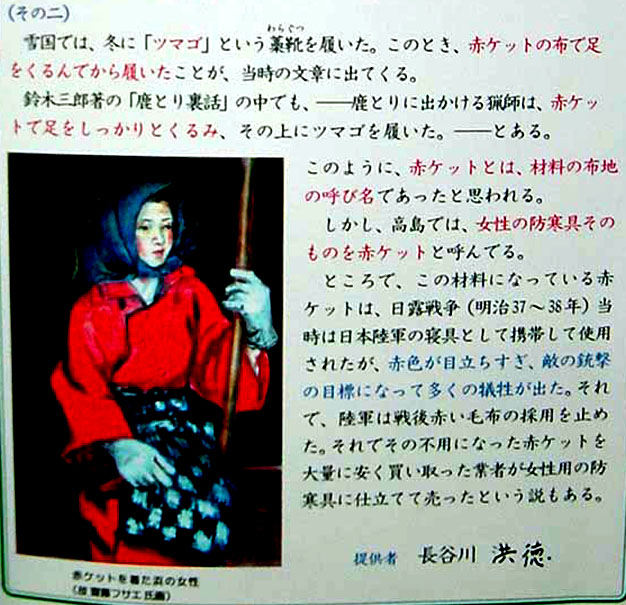 (その二)
わらぐつ
雪国では、冬に「ツマゴ」という藁靴を履いた。このとき、赤ケットの布で足
をくるんでから履いたことが、当時の文章に出てくる。
鈴木三郎著の「鹿とり裏話」の中でも、――鹿とりに出かける猟師は、赤ケッ
トで足をしっかりとくるみ、その上にツマゴを履いた。――とある。
このように、赤ケットとは、材料の布地
の呼び名であったと思われる。
しかし、高島では、女性の防寒具その
ものを赤ケットと呼んでる。
ところで、この材料になっている赤
ケットは、日露戦争（明治37～38年）当
時は日本陸軍の寝具として携帯して使用
されたが、赤色が目立ちすぎ、敵の銃撃
の目標になって多くの犠牲が出た。それ
で、陸軍は戦後赤い毛布の採用を止め
た。それでその不用になった赤ケットを
大量に安く買い取った業者が女性用の防
寒具に仕立てて売ったという説もある。
提供者 長谷川 洪徳.
赤ケットを着た浜の女性
(故 齋藤フサエ 氏画)